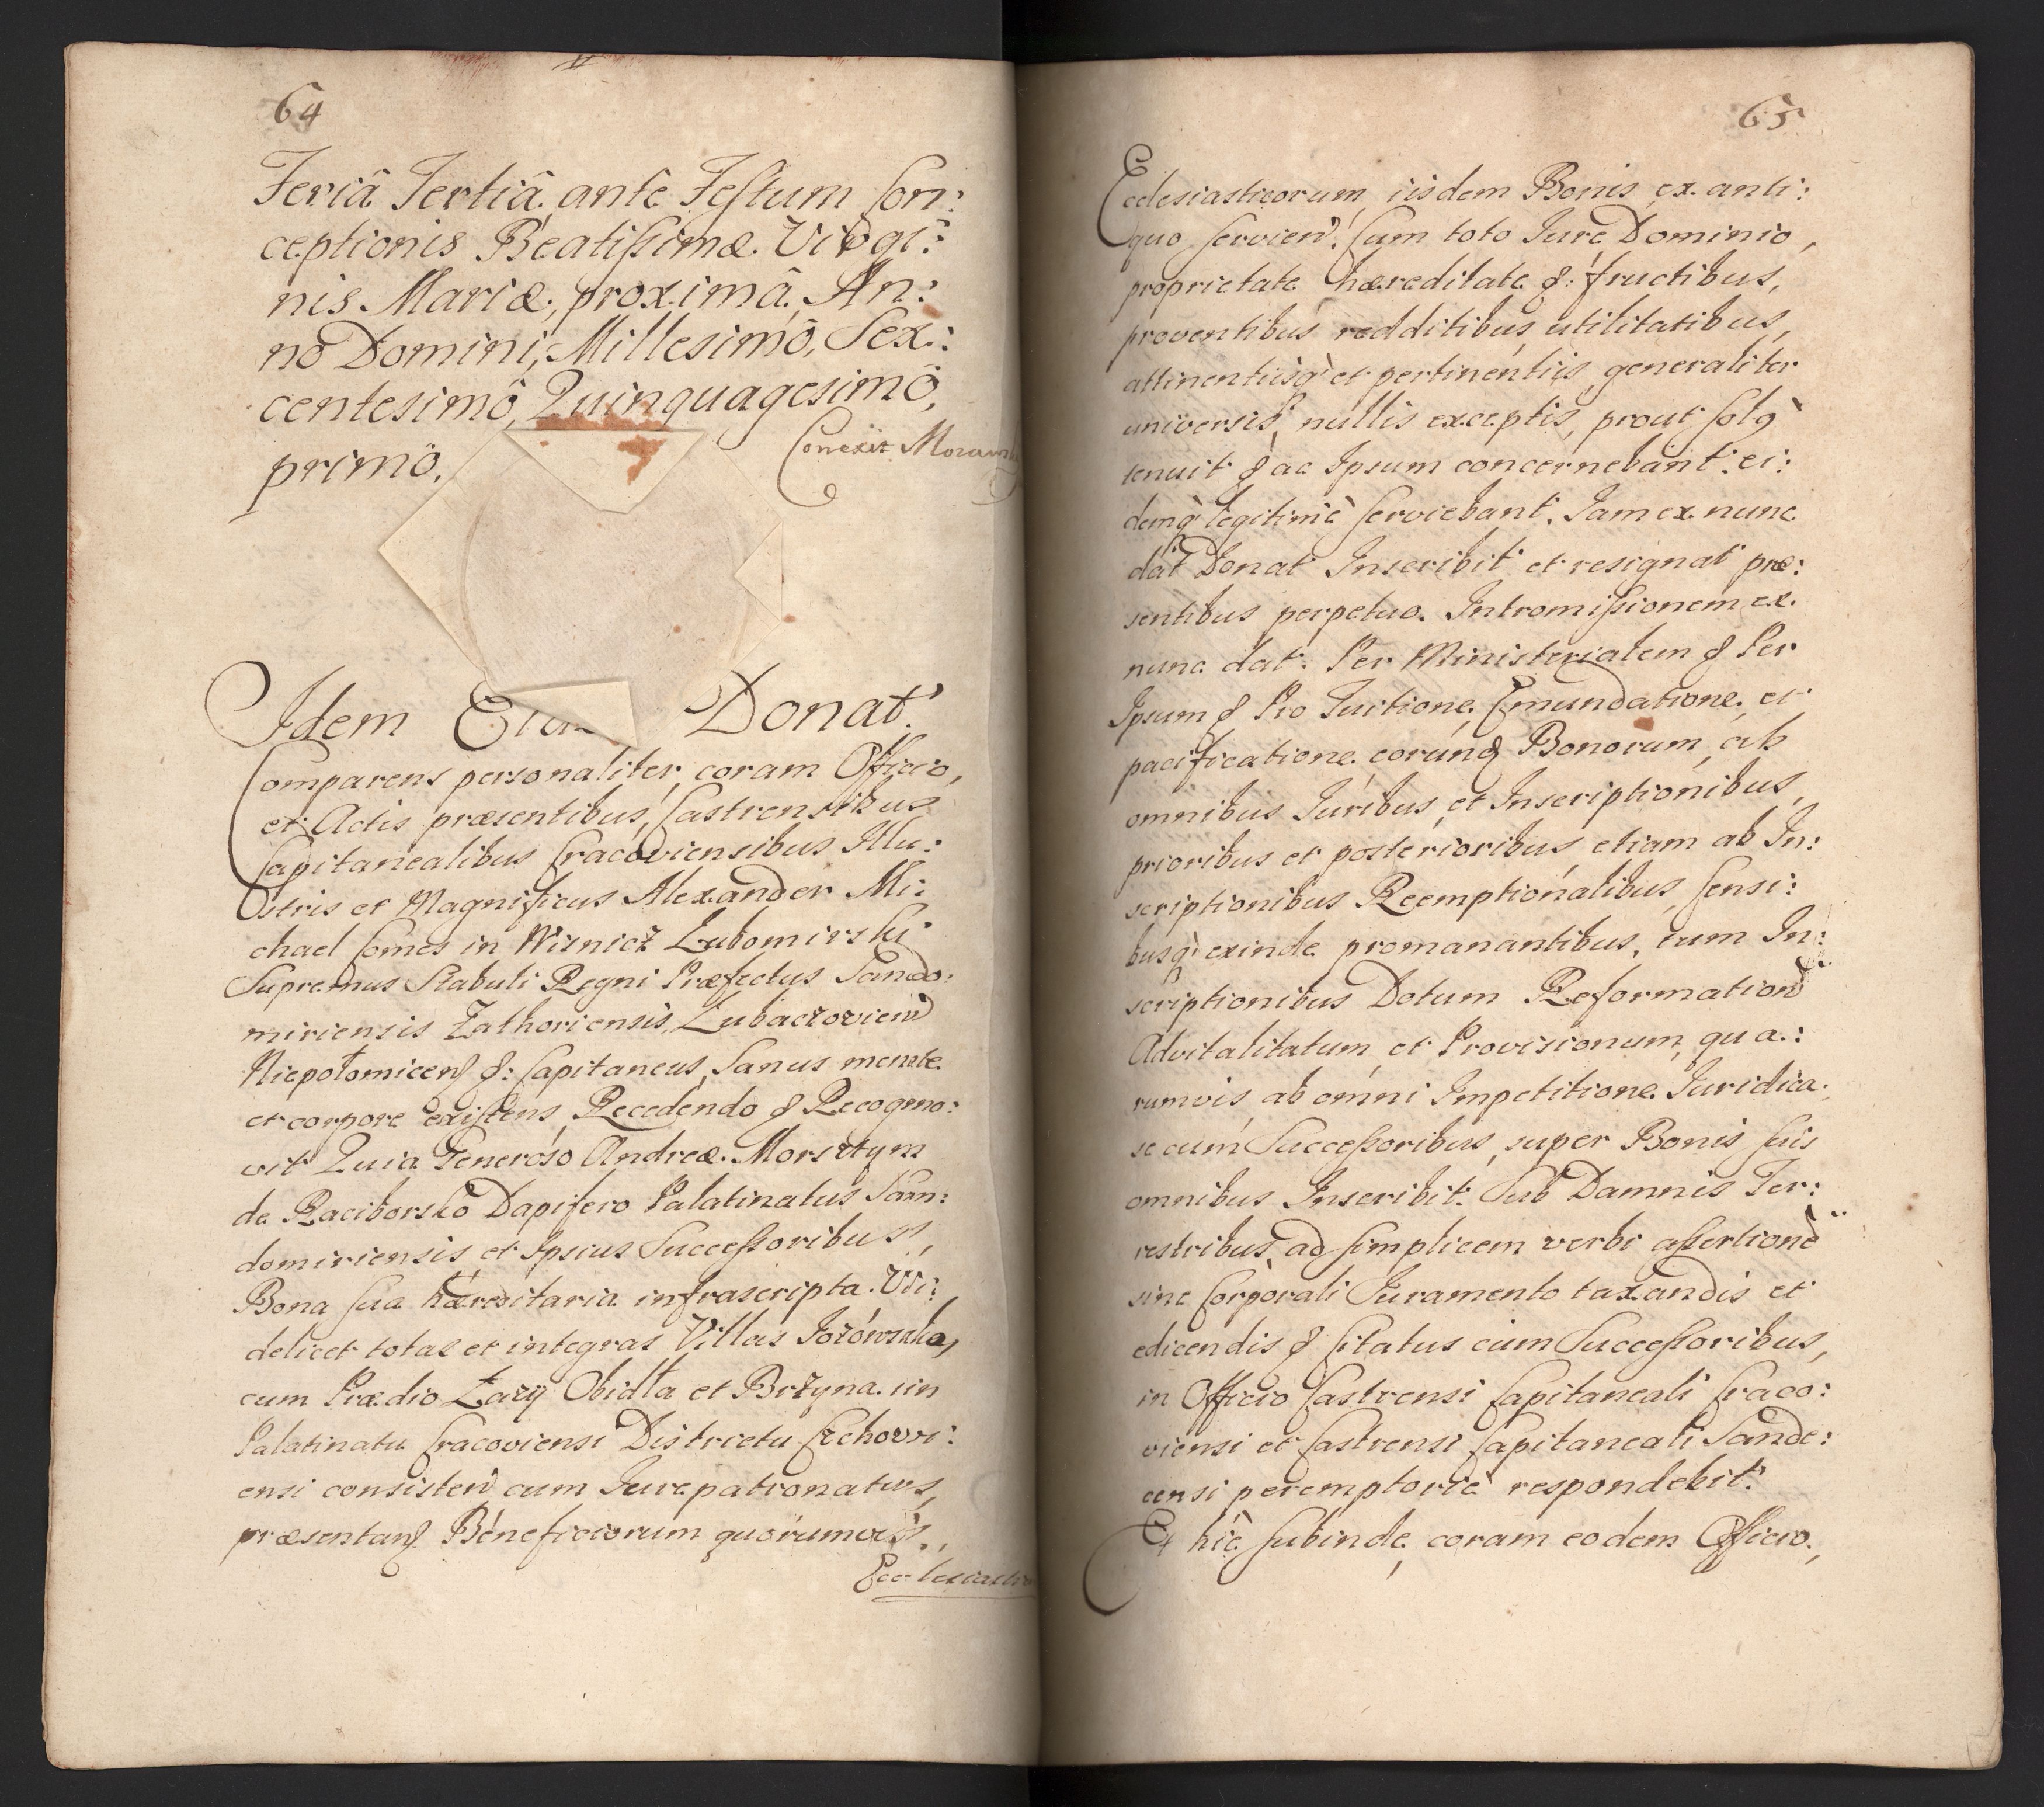 64
Feriâ Tertiâ ante Festum Con:
ceptionis Beatissimæ Virgi:
nis Mariæ, proximâ, An:
no Domini, Millesimô, Sex:
centesimô, Quinquagesimô,
primô.
Conexit
Idem Donat.
Comparens personaliter, coram Officio,
et Actis præsentibus, Castrensibus
Capitanealibus Cracoviensibus Illu:
stris et Magnificus Alexander Mi:
chael Comes in Wisnicz Lubomirski
Supremus Stabuli Regni Præfectus Sando:
miriensis Zathoriensis, Lubaczovien
Niepołomicens &: Capitaneus, Sanus mente
et corpore existens, Recedendo & Recogno:
vit Quia Generoso Andreæ Morsztyn
de Raciborsko Dapifero Palatinatus San:
domiriensis, et Ipsius Successoribus,
Bona sua hæreditaria infrascripta. Vi:
delicet totas et integras Villas Jozówska,
cum Prædio Łazy Obidła et Brzyna in
Palatinatu Cracoviensi Districtu Czchovi:
ensi consisten cum Jurepatronatus,
præsentan Beneficiorum quorumvis,
Ecclesiastico
65
Ecclesiasticorum, iisdem Bonis, ex anti:
quo servien. Cum toto Jure Dominio,
proprietate hæreditate &: fructibus,
proventibus redditibus, utilitatibus,
attinentiisq et pertinentiis, generaliter
universis, nullis exceptis, prout solq
tenuit & ac Ipsum concernebant. ei:
demq legitimè serviebant. Jam ex nunc
dat Donat Inscribit et resignat præ:
sentibus perpetuo. Intromissionem ex
nunc dat. Per Ministerialem & Per
Ipsum & Pro Tuitione, Emundatione, et
pacificatione eorund Bonorum, ab
omnibus Juribus, et Inscriptionibus,
prioribus et posterioribus, etiam ab In:
scriptionibus Reemptionalibus, Censi:
busq exinde promanantibus, tum In:
scriptionibus Dotum Reformation
Advitalitatum, et Provisionum, qua:
rumvis ab omni Impetitione Juridica,
se cum Successoribus, super Bonis suis
omnibus Inscribit. Sub Damnis Ter:
restribus, ad simplicem verbi assertione
sine Corporali Juramento taxandis et
edicendis & Citatus cum Successoribus,
in Officio Castrensi Capitaneali Craco:
viensi et Castrensi Capitaneali Sande:
censi peremptorie respondebit.
Et hic subinde, coram eodem Officio,